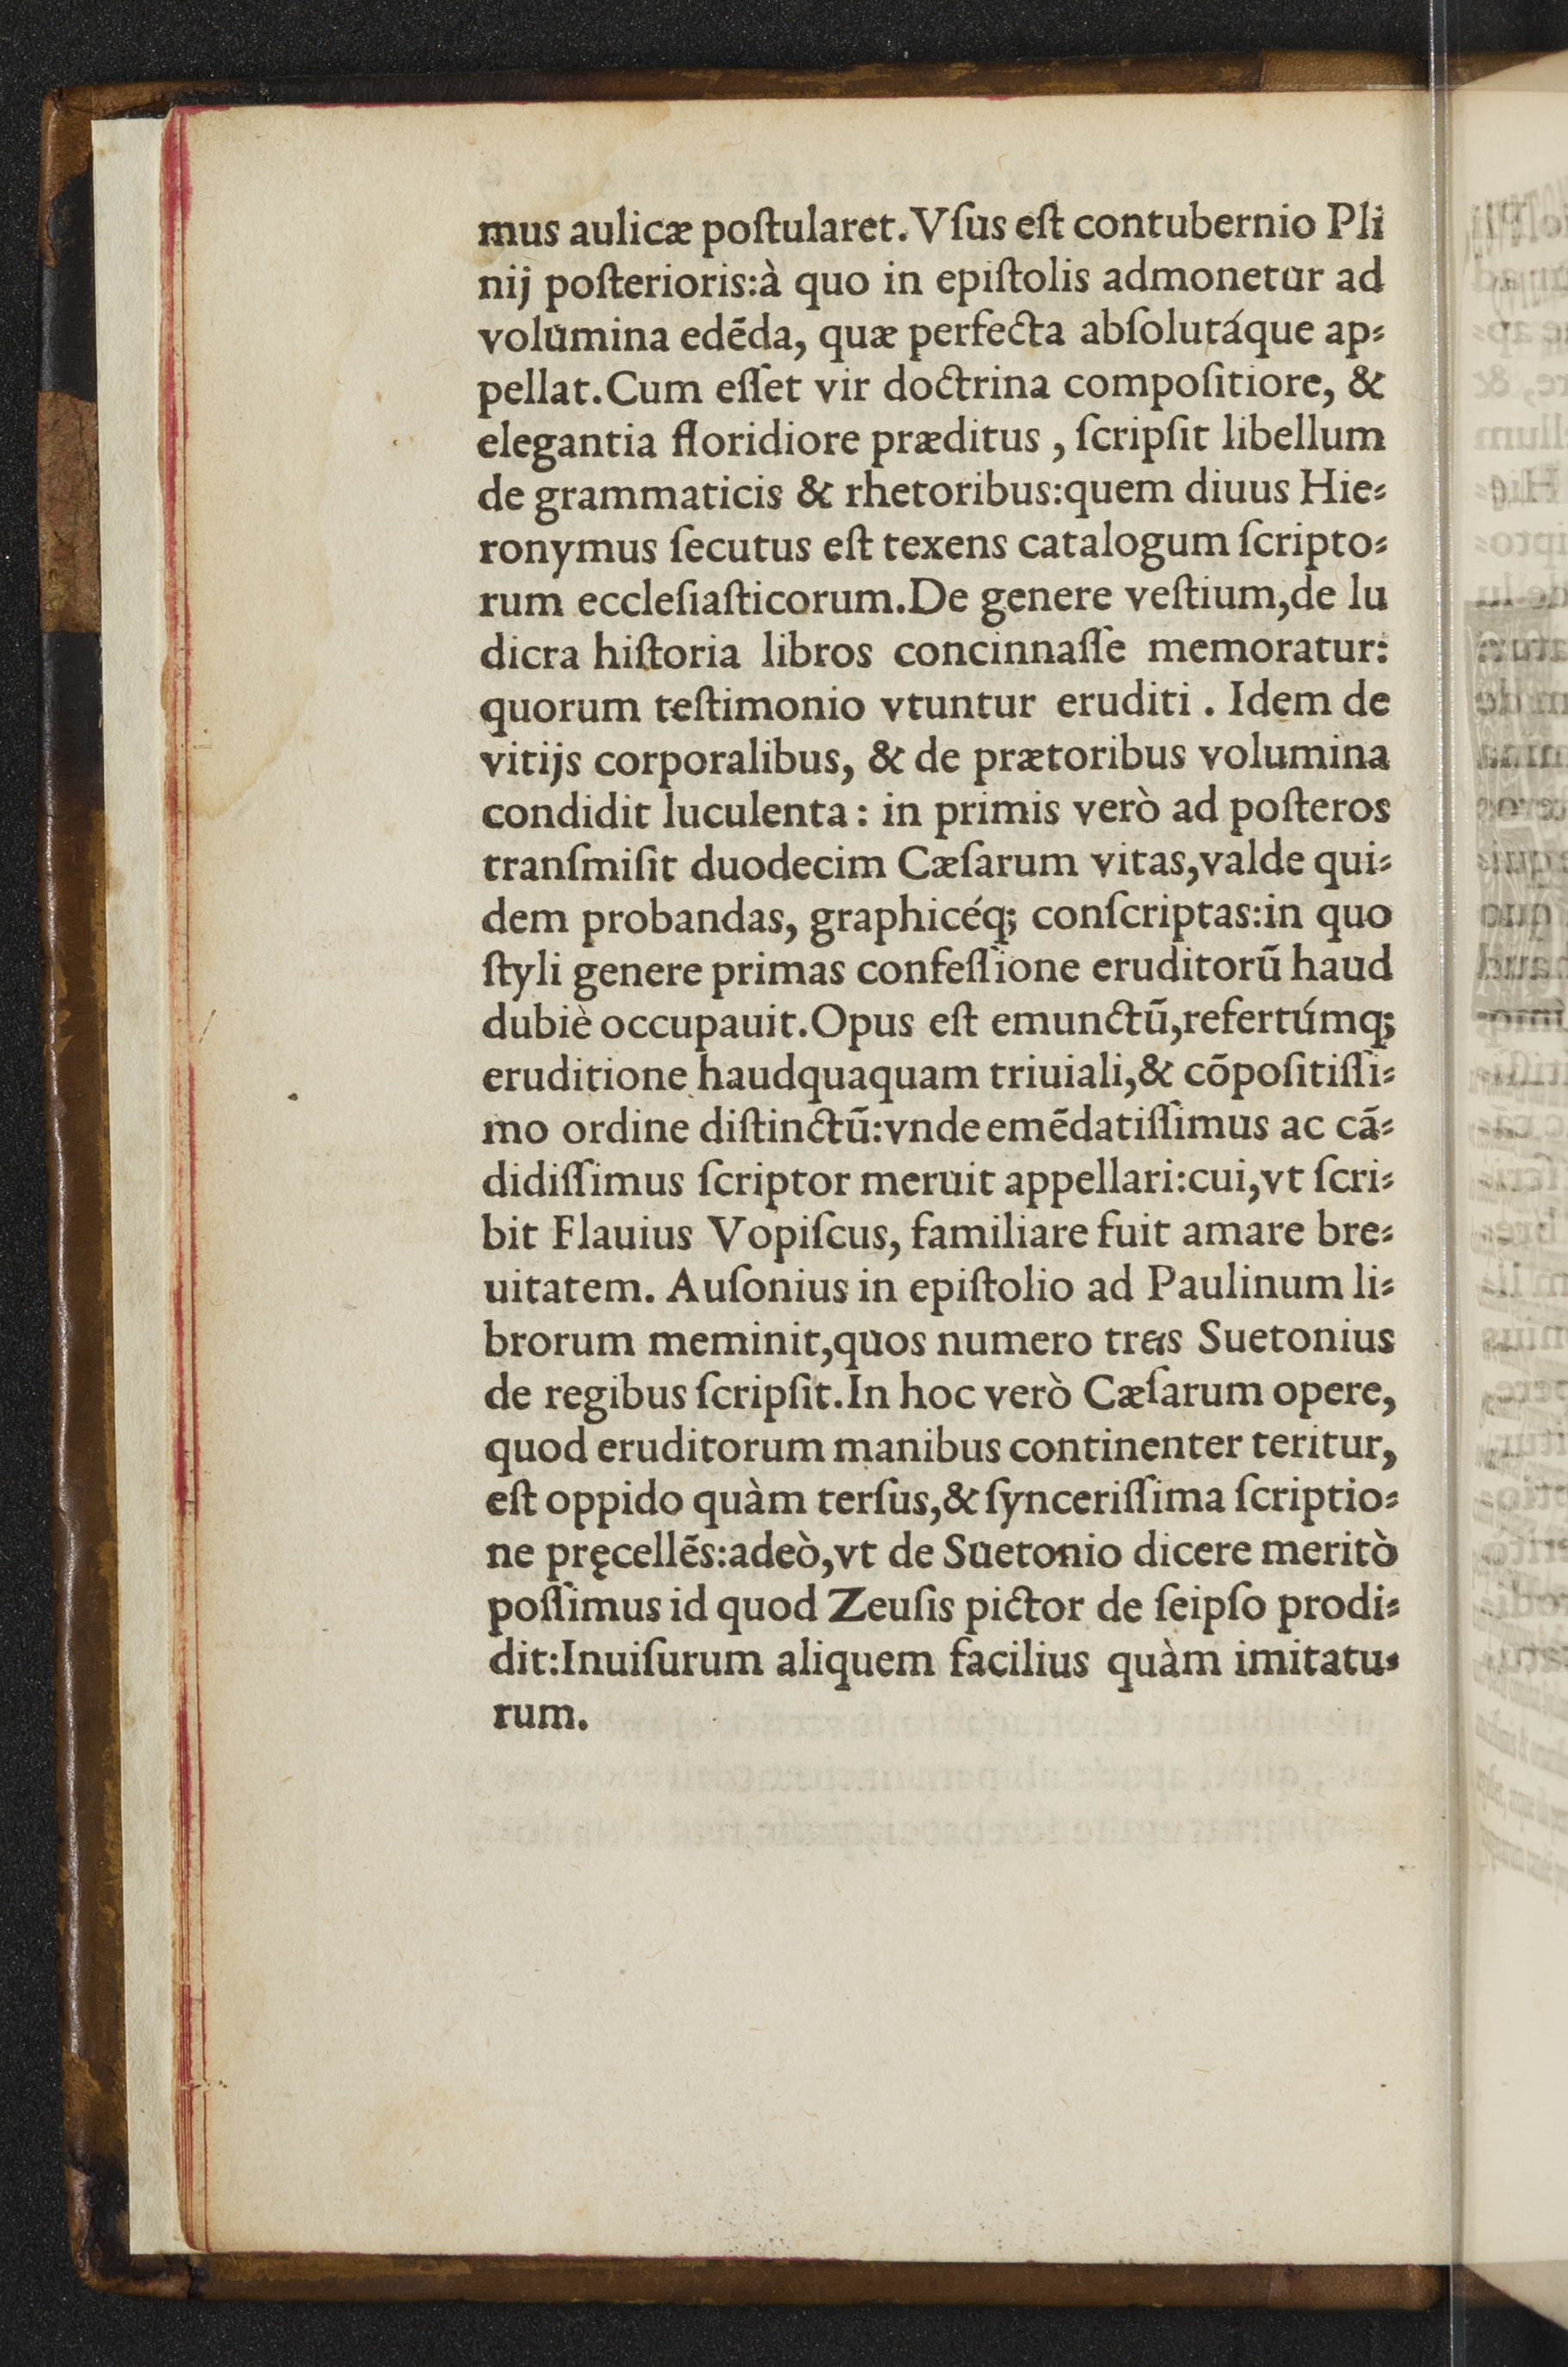 mus aulicæ poſtularet. Vſus eſt contubernio Pli
nij poſterioris:à quo in epiſtolis admonetur ad
volumina edēda, quæ perfecta abſolutáque ap⸗
pellat. Cum eſſet vir doctrina compoſitiore, &
elegantia floridiore præditus , ſcripſit libellum
de grammaticis & rhetoribus:quem diuus Hie⸗
ronymus ſecutus eſt texens catalogum ſcripto⸗
rum eccleſiaſticorum. De genere veſtium,de lu
dicra hiſtoria libros concinnaſſe memoratur:
quorum teſtimonio vtuntur eruditi . Idem de
vitijs corporalibus, & de prætoribus volumina
condidit luculenta : in primis verò ad poſteros
tranſmiſit duodecim Cæſarum vitas,valde qui⸗
dem probandas, graphicéq; conſcriptas:in quo
ſtyli genere primas confeſſione eruditorū haud
dubiè occupauit. Opus eſt emunctū,refertúmq;
eruditione haudquaquam triuiali,& cōpoſitiſſi⸗
mo ordine diſtinctū:vnde emēdatiſſimus ac cā⸗
didiſſimus ſcriptor meruit appellari:cui,vt ſcri⸗
bit Flauius Vopiſcus, familiare fuit amare bre⸗
uitatem. Auſonius in epiſtolio ad Paulinum li⸗
brorum meminit,quos numero treis Suetonius
de regibus ſcripſit. In hoc verò Cæſarum opere,
quod eruditorum manibus continenter teritur,
eſt oppido quàm terſus,& ſynceriſſima ſcriptio⸗
ne pręcellēs:adeò,vt de Suetonio dicere meritò
poſſimus id quod Zeuſis pictor de ſeipſo prodi⸗
dit:Inuiſurum aliquem facilius quàm imitatu⸗
rum.